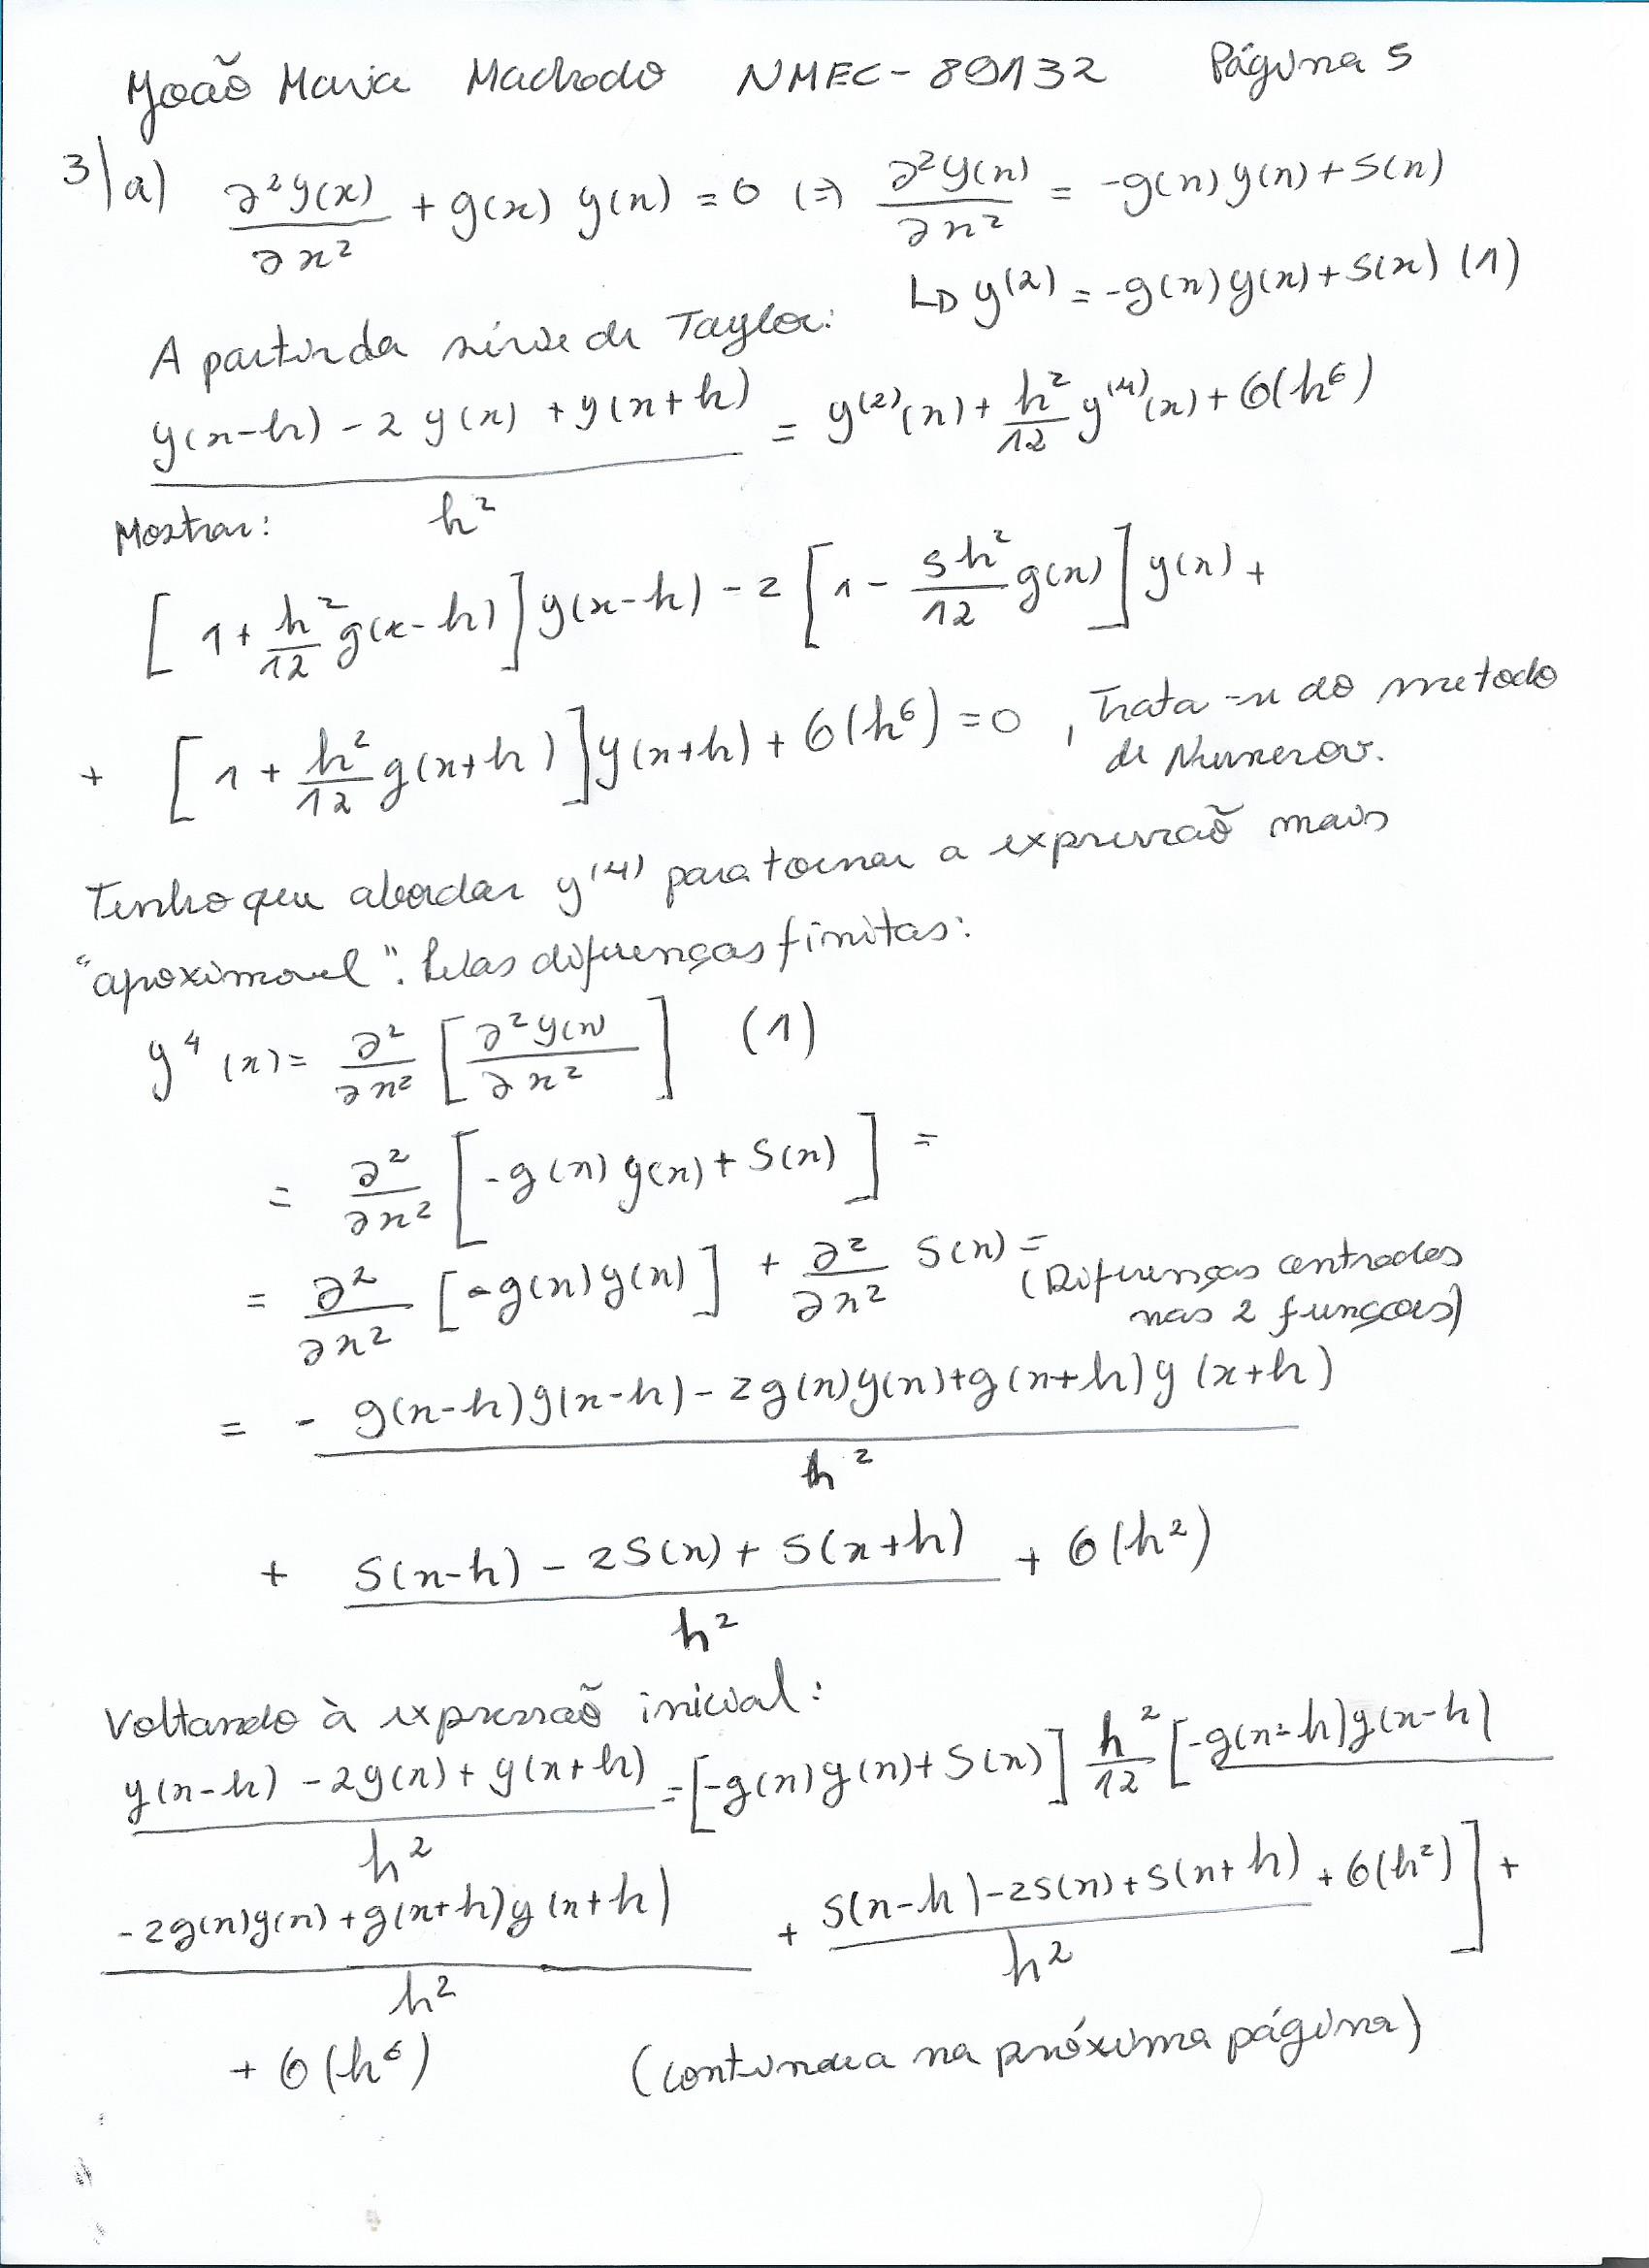 João Maria Machado NMEC-89132 Página 5
3|a) ∂²y(x)/∂x² + g(x) y(x) = 0 (=) ∂²y(x)/∂x² = -g(x) y(x) + S(x)
A partir da série de Taylor: ↳ y⁽²⁾ = -g(x) y(x) + S(x) (1)
(y(x-h) - 2 y(x) + y(x+h))/h² = y⁽²⁾(x) + h²/12 y⁽⁴⁾(x) + O(h⁶)
Mostrar:
[1 + h²/12 g(x-h)] y(x-h) - 2 [1 - 5h²/12 g(x)] y(x) +
+ [1 + h²/12 g(x+h)] y(x+h) + O(h⁶) = 0 , Trata-se do metodo
de Numerov.
Tenho que abordar y⁽⁴⁾ para tornar a expressão mais
"aproximavel". Pelas diferenças finitas:
y⁴(x) = ∂²/∂x² [∂²y(x)/∂x²] (1)
= ∂²/∂x² [-g(x) y(x) + S(x)] =
= ∂²/∂x² [-g(x) y(x)] + ∂²/∂x² S(x) = (Diferenças centradas
nas 2 funções)
= - (g(x-h) y(x-h) - 2g(x)y(x) + g(x+h) y(x+h))/h²
+ (S(x-h) - 2S(x) + S(x+h))/h² + O(h²)
Voltando à expressão inicial:
(y(x-h) - 2y(x) + y(x+h))/h² = [-g(x) y(x) + S(x)] h²/12 [(-g(x-h) y(x-h)
-2g(x)y(x) + g(x+h) y(x+h))/h² + (S(x-h) - 2S(x) + S(x+h))/h² + O(h²)] +
+ O(h⁶) (continua na próxima página)